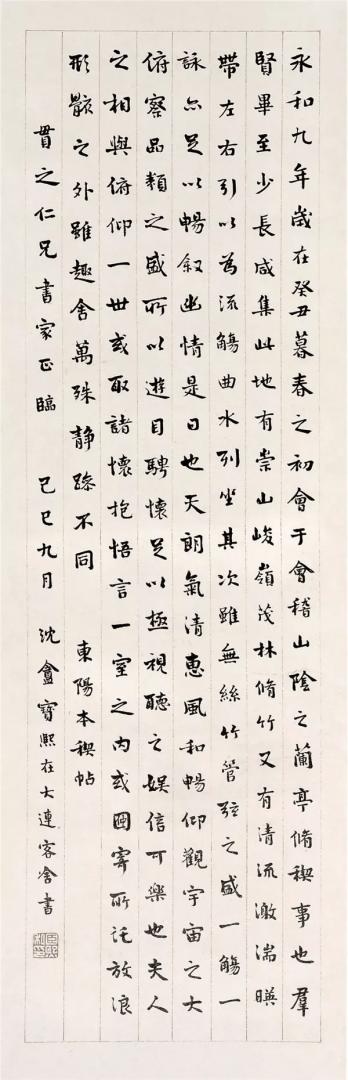 永和九年歲在癸丑暮春之初會于會稽山陰之蘭亭脩稧事也羣
賢畢至少長咸集此地有崇山峻嶺茂林脩竹又有清流激湍暎
帶左右引以為流觴曲水列坐其次雖無絲竹管弦之盛一觴一
詠亦足以暢叙幽情是日也天朗氣清惠風和暢仰觀宇宙之大
俯察品類之盛所以遊目騁懷足以極視聽之娱信可樂也夫人
之相與俯仰一世或取諸懷抱悟言一室之内或因寄所託放浪
形骸之外雖趣舍萬殊静躁不同 東陽本稧帖
貫之仁兄書家正臨 己巳九月 沈盦寶熙在大連客舍書